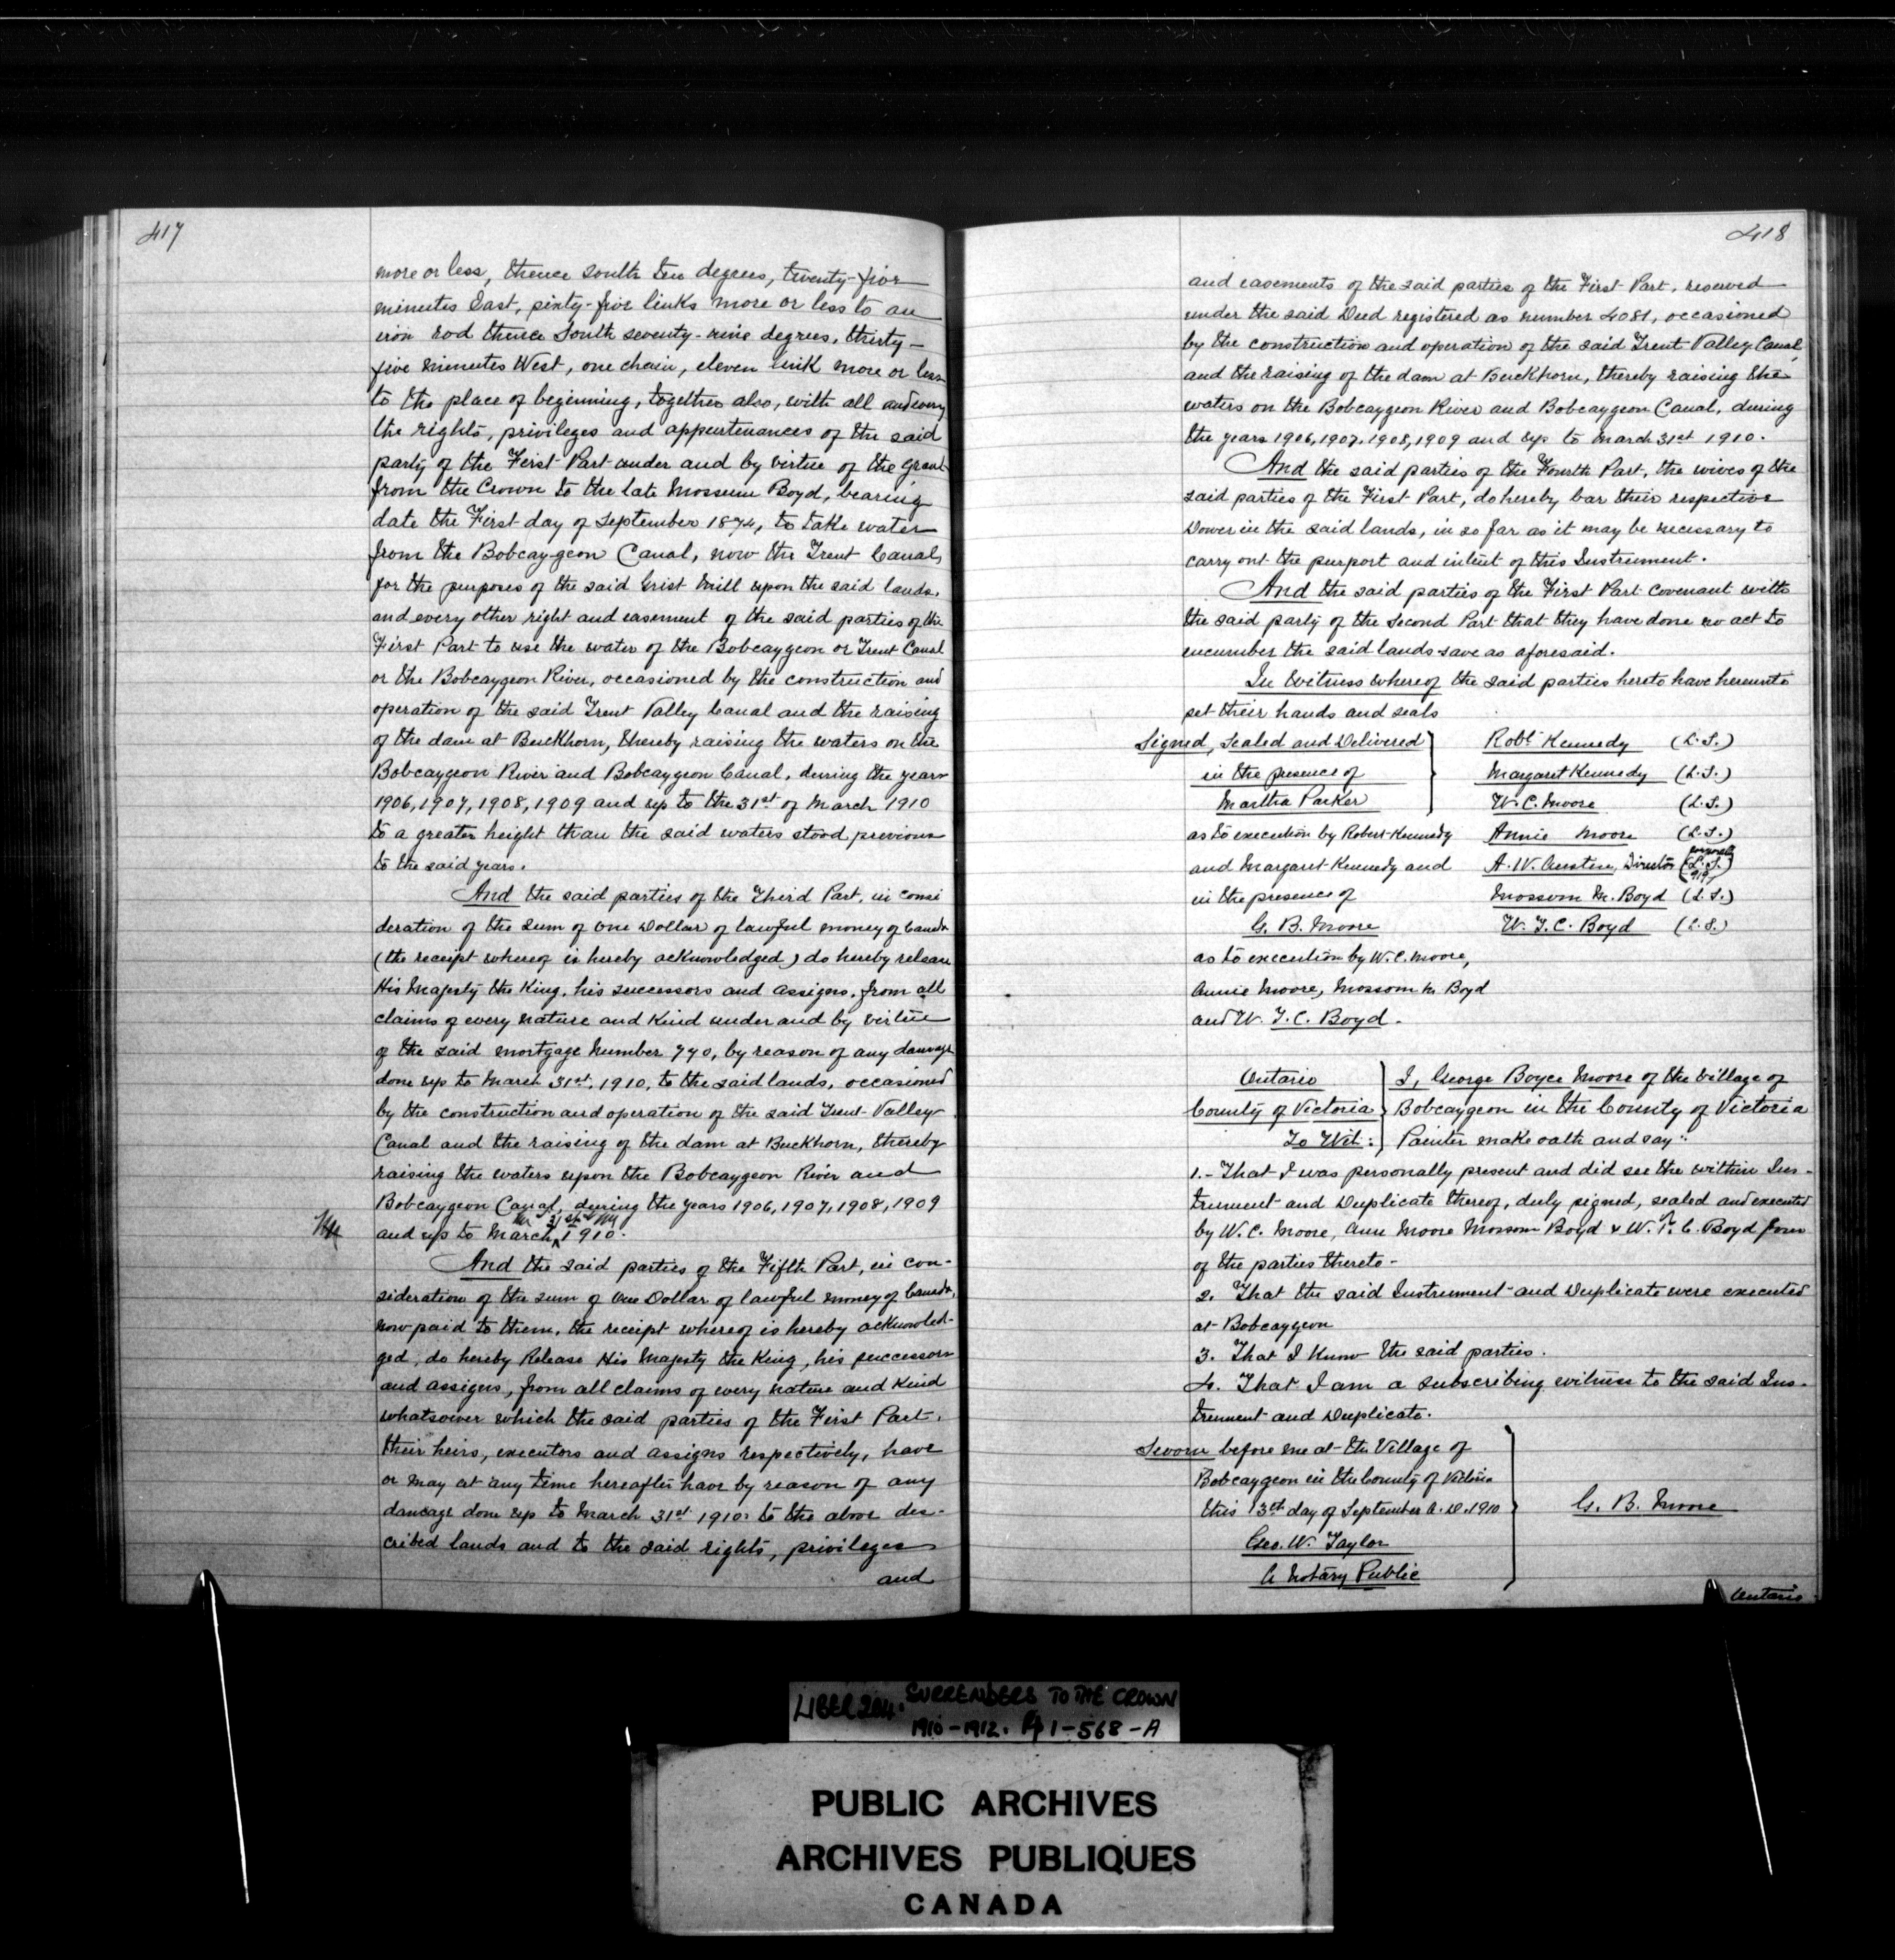 417
more or less, thence south ten degrees, twenty-five
minutes East, sixty-five links more or less to an
iron rod thence South seventy-nine degrees, thirty-
five minutes West, one chain, eleven link more or less
to the place of beginning, together also, with all and every
the rights, privileges and appurtenances of the said
party of the First Part under and by virtue of the grant
from the Crown to the late Mossum Boyd, bearing
date the First day of September 1874, to take water
from the Bobcaygeon Canal, now the Trent Canal,
for the purposes of the said Grist Mill upon the said lands,
and every other right and easement of the said parties of the
First Part to use the water of the Bobcaygeon or Trent Canal
or the Bobcaygeon River, occasioned by the construction and
operation of the said Trent Valley Canal and the raising
of the dam at Buckhorn, thereby raising the waters on the
Bobcaygeon River and Bobcaygeon Canal, during the years
1906, 1907, 1908, 1909 and up to the 31st of March 1910
to a greater height than the said waters stood previous
to the said years.
And the said parties of the Third Part, in consi
deration of the sum of One Dollar of lawful money of Canada
(the receipt whereof is hereby acknowledged) do hereby release
His Majesty the King, his successors and assigns, from all
claims of every nature and kind under and by virtue
of the said mortgage number 770, by reason of any damage
done up to March 31st, 1910, to the said lands, occasioned
by the construction and operation of the said Trent Valley
Canal and the raising of the dam at Buckhorn, thereby
raising the waters upon the Bobcaygeon River and
Bobcaygeon Canal, during the years 1906, 1907, 1908, 1909
31st
and up to March 1910.
And the said parties of the Fifth Part, in con-
sideration of the sum of One Dollar of lawful money of Canada,
now paid to them, the receipt whereof is hereby acknowled-
ged, do hereby Release His Majesty the King, his successors
and assigns, from all claims of every nature and kind
whatsoever which the said parties of the First Part,
their heirs, executors and assigns respectively, have
or may at any time hereafter have by reason of any
damage done up to March 31st 1910 to the above des-
cribed lands and to the said rights, privileges
and
418
and easements of the said parties of the First Part, reserved
under the said Deed registered as number 4081, occasioned
by the construction and operation of the said Trent Valley Canal,
and the raising of the dam at Buckhorn, thereby raising the
waters on the Bobcaygeon River and Bobcaygeon Canal, during
the years 1906, 1907, 1908, 1909 and up to March 31st 1910.
And the said parties of the Fourth Part, the wives of the
said parties of the First Part, do hereby bar their respective
Dower in the said lands, in so far as it may be necessary to
carry out the purport and intent of this Instrument.
And the said parties of the First Part covenant with
the said party of the Second Part that they have done no act to
encumber the said lands save as aforesaid.
In Witness whereof the said parties hereto have hereunto
set their hands and seals
Signed, Sealed and Delivered } Robt Kennedy (L.S.)
in the presence of Margaret Kennedy (L.S.)
Martha Parker W. C. Moore (L.S.)
as to execution by Robert Kennedy Annie Moore (L.S.)
and Margaret Kennedy and A. W. Austin, Director (L.S.)
in the presence of Mossom M. Boyd (L.S.)
G. B. Moore W. T. C. Boyd (L.S.)
as to execution by W. C. Moore,
Annie Moore, Mossom M. Boyd
and W. T. C. Boyd.
Ontario } I, George Boyce Moore of the Village of
County of Victoria } Bobcaygeon in the County of Victoria
To Wit: } Painter make oath and say:
1.- That I was personally present and did see the within Ins-
trument and Duplicate thereof, duly signed, sealed and executed
by W. C. Moore, Ann Moore Mossom Boyd & W. T. C. Boyd four
of the parties thereto-
2. That the said Instrument and Duplicate were executed
at Bobcaygeon
3. That I know the said parties.
4. That I am a subscribing witness to the said Ins-
trument and Duplicate.
Sworn before me at the Village of
Bobcaygeon in the County of Victoria
this 13th day of September A.D. 1910 } G. B. Moore
Geo. W. Taylor
A Notary Public
Ontario
LIBER 204. SURRENDERS TO THE CROWN
1910-1912. Pp 1-568-A
PUBLIC ARCHIVES
ARCHIVES PUBLIQUES
CANADA